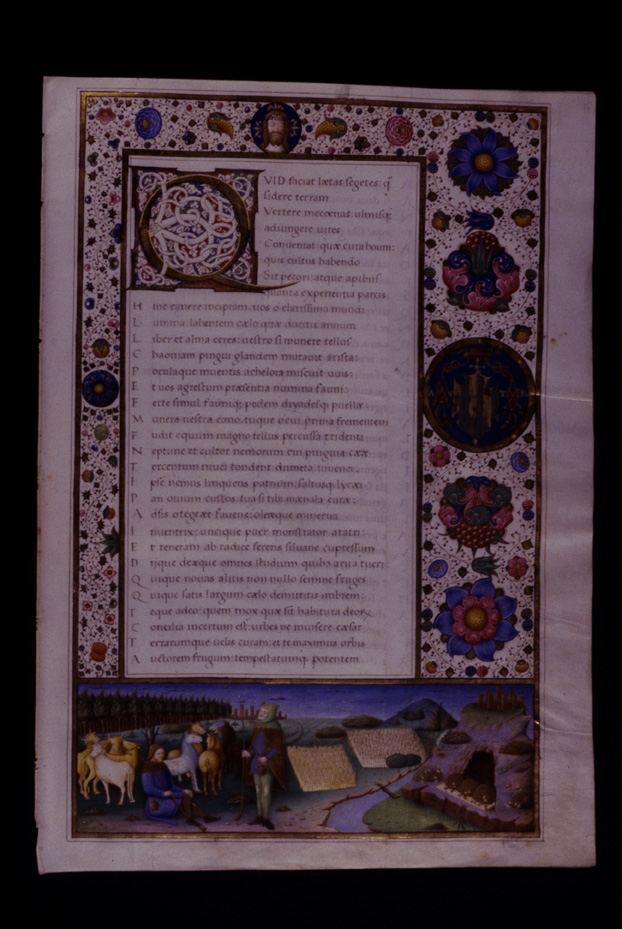 QVID faciat laetas segetes: q̄
sidere terram
Vertere mecoenas: ulmisq;
adiungere uites
Conueniat: quae cura boum:
quis cultus habendo
Sit pecori: atque apibus
quanta experientia parcis
Hinc canere incipiam. uos o clarissima mundi
Lumina: labentem caelo quae ducitis annum
Liber et alma ceres: uestro si munere tellus
Chaoniam pingui glandem mutauit arista:
Poculaque inuentis acheloia miscuit uuis:
Et uos agrestum praesentia numina fauni:
Ferte simul fauniq; pedem dryadesq; puellae:
Munera uestra cano. tuque o cui prima frementem
Fudit equum magno tellus percussa tridenti
Neptune: et cultor nemorum cui pinguia caeae
Tercentum niuei tondent dumeta iuuenci
Ipse nemus linquens patrium: saltusq; lycaei
Pan ouium custos. tua si tibi maenala curae:
Adsis o tegeaee fauens: oleaeque minerua
Inuentrix: uncique puer monstrator aratri:
Et teneram ab radice ferens siluane cupressum
Diique deaeque omnes studium quibus arua tueri
Quique nouas alitis non nullo semine fruges
Quique satis largum caelo demittitis imbrem:
Teque adeo: quem mox quae sit habitura deorx
Concilia incertum est: urbes ne inuisere caesar
Terrarumque uelis curam: et te maximus orbis
Auctorem frugum: tempestatumq; potentem